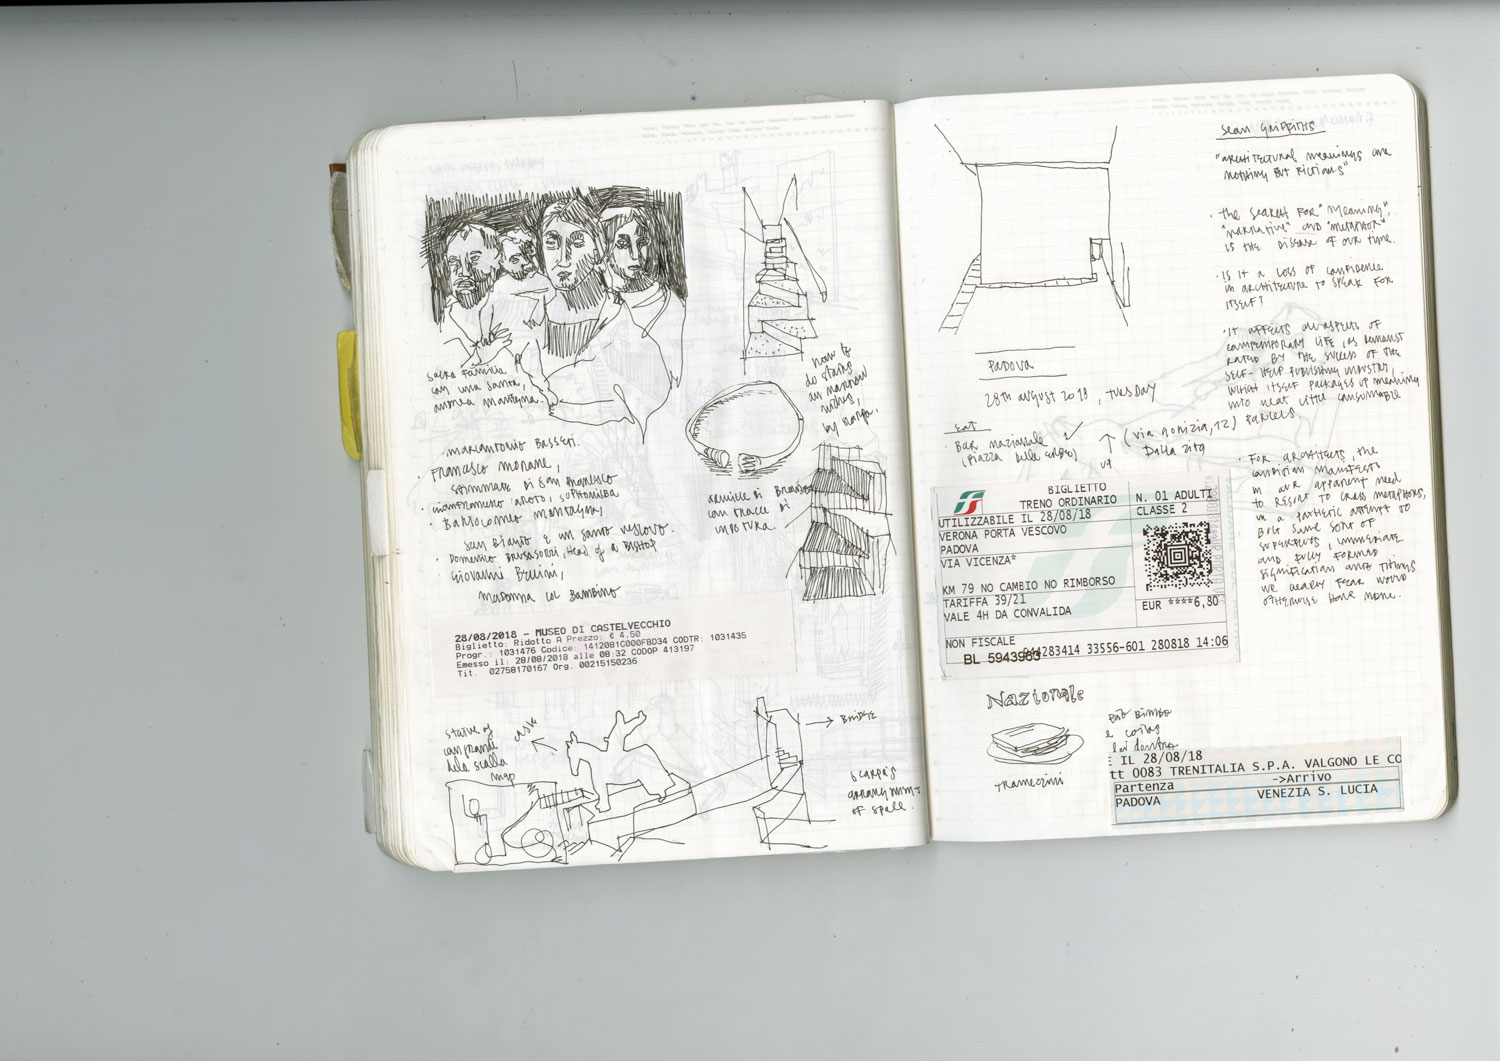 Sacra Famiglia
con una Santa,
andrea mantegna.
how to
do stairs
on narrow
niches,
by scarpa.
· marcantonio Basseti.
Francesco morone,
stimmate di San Francesco
· Bartolomeo montagna,
San Biagio e un santo vescovo.
· Domenico Brusasorzi, Head of a Bishop
Giovanni Bellini,
madonna col Bambino
armille di Bronzo
con tracce di
28/08/2018 - MUSEO DI CASTELVECCHIO
Biglietto: Ridotto A Prezzo: € 4,50
Progr.: 1031476 Codice: 1412081C000FBD34 CODTR: 1031435
Emesso il: 28/08/2018 alle 08:32 CODOP 413197
Tit. 02758170167 Org. 00215150236
Statue of
cangrande
dela scalla
→ Bridge
scarpa's
arrangements
of space.
PADOVA
28th August 2018, Tuesday
eat
· Bar nazionale
(Piazza delle erbe)
(via gorizia, 12)
Dalla zita
BIGLIETTO
TRENO ORDINARIO
N. 01 ADULTI
UTILIZZABILE IL 28/08/18
CLASSE 2
VERONA PORTA VESCOVO
PADOVA
VIA VICENZA*
KM 79 NO CAMBIO NO RIMBORSO
TARIFFA 39/21
VALE 4H DA CONVALIDA
EUR ****6,80
NON FISCALE
BL 5943963
33556-601 280818 14:06
Nazionale
Tramezzini
IL 28/08/18
tt 0083 TRENITALIA S.P.A. VALGONO LE CO
Partenza
->Arrivo
PADOVA
VENEZIA S. LUCIA
Sean Griffiths
"architectural meanings are
nothing but fictions"
· the search for "meaning",
"narrative" and "metaphor"
is the disease of our time.
· Is it a loss of confidence
in architecture to speak for
itself?
· It affects all aspects of
contemporary life, as demonst
rated by the success of the
self-help publishing industry,
which itself packages up meaning
into neat little consumable
parcels
· For architects, the
condition manifests
in our apparent need
to resort to crass metaphors,
in a pathetic attempt to
bolt some sort of
superficial, immediate
and fully formed
signification onto things
we clearly fear would
otherwise have none.